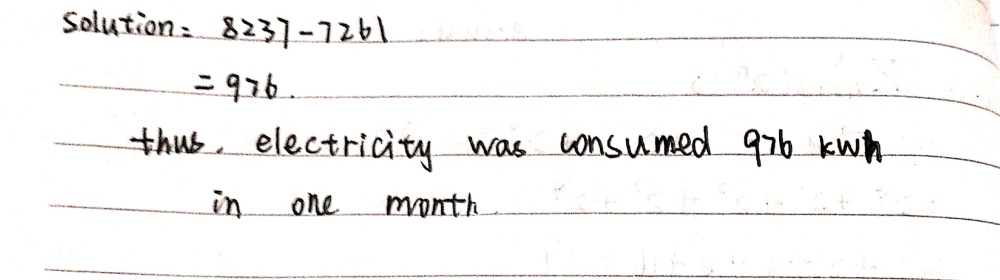 Solution: 8237-7261
= 976.
thus. electricity was consumed 976 kwh
in one month.